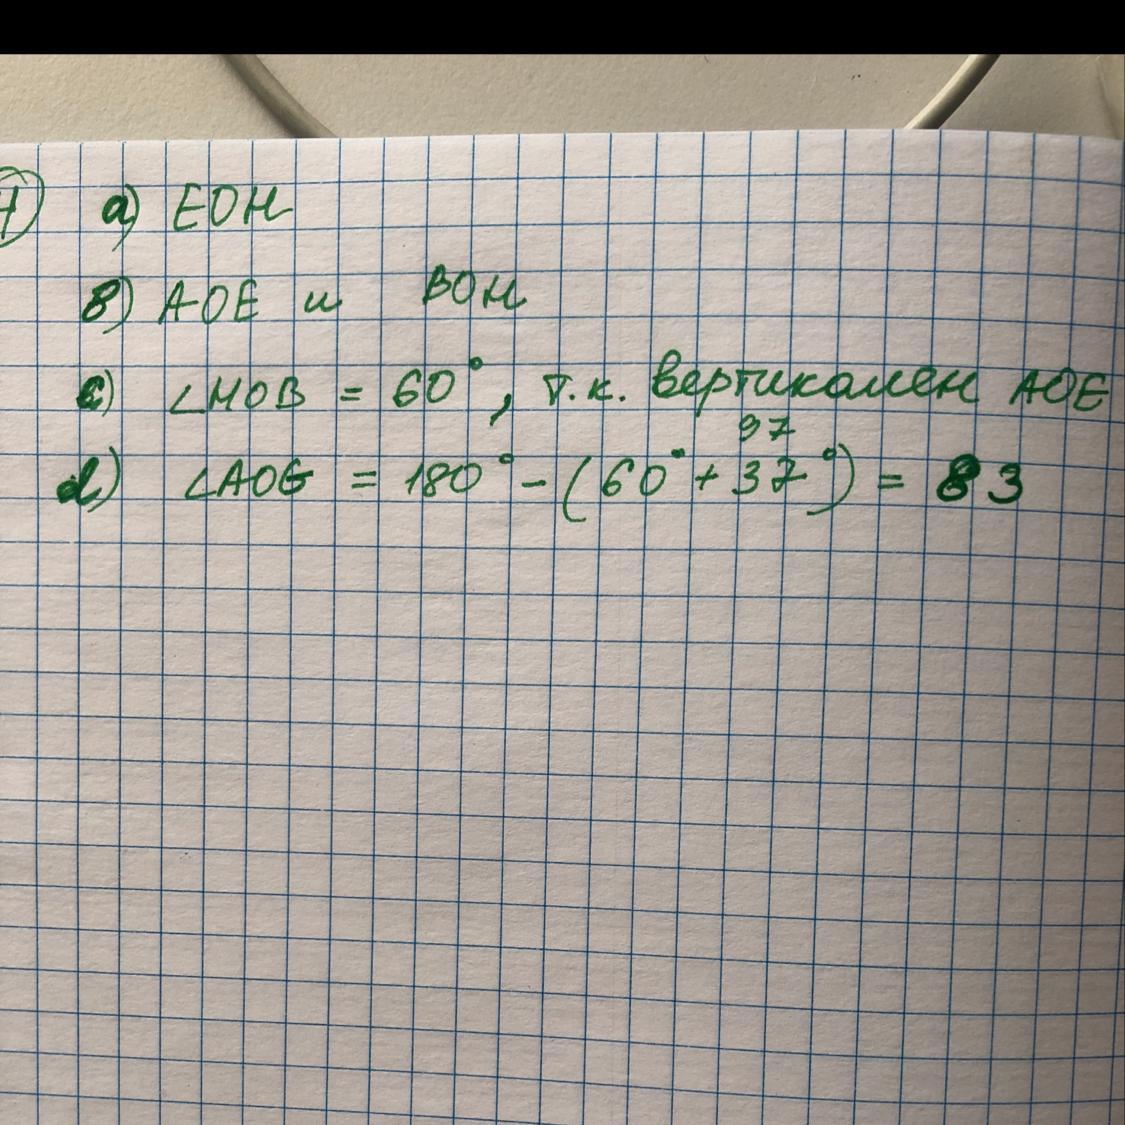 1) a) EOH
в) AOE и BOH
c) ∠HOB = 60°, т.к. вертикален AOE
97
d) ∠AOG = 180° - (60° + 37°) = 83